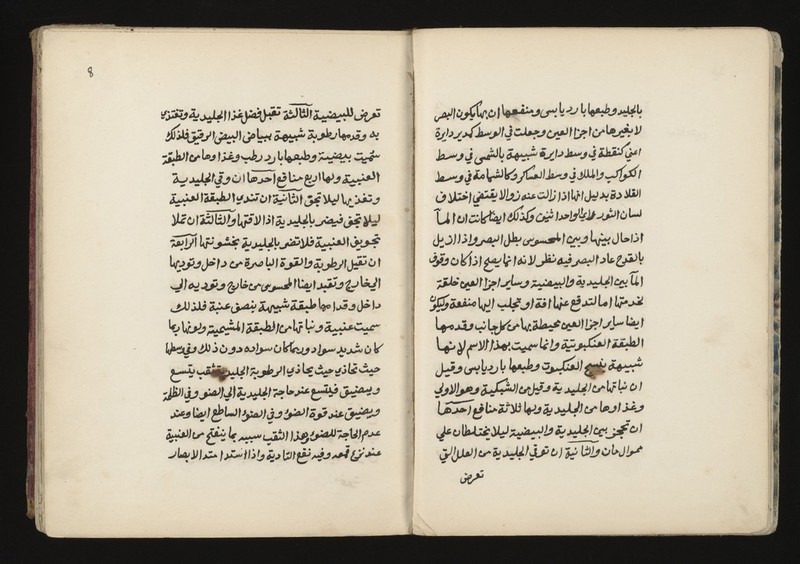 بالجليد وطبعها بارد يابس ومنفعها ان بها يكون البصر
لا بغيرها من اجزا العين وجعلت في الوسط كمدير دايرة
اعني كنقطة في وسط دايرة شبيهة بالشمس في وسط
الكواكب والملك في وسط العسكر وكالشمامة في وسط
القلادة بدليل انها اذا زالت عنه زوالا يقتضي اختلاف
لسان النور الواحد اثنين وكذلك ايضا كانت ان المآ
اذا حال بينها وبين المحسوس بطل البصر واذا ازيل
بالقدح عاد البصر فيه نظر لانه انما يصح اذا كان وقوف
المآ بين الجليدية والبيضية وساير اجزا العين خلقة
لخدمتها اما لتدفع عنها افة او تجلب اليها منفعة وليكون
ايضا ساير اجزا العين محيطة بها من كل جانب وقدمها
الطبقة العنكبوتية وانما سميت بهذا الاسم لانها
شبيهة بنسج العنكبوت وطبعها بارد يابس وقيل
ان نباتها من الجليدية وقيل من الشبكية وهو الاولي
وغذاوها من الجليدية ولها ثلاثة منافع احدها
ان تحجز بين الجليدية والبيضية ليلا يختلطان علي
ممر الزمان والثانية ان توقي الجليدية من العلل التي
تعرض
8
تعرض للبيضية الثالثة تقبل فضل غذا الجليدية وتغتذي
به وقدمها رطوبة شبيهة ببياض البيض الرقيق فلذلك
سميت بيضية وطبعها بارد رطب وغذاوها من الطبقة
العنبية ولها اربع منافع احدها ان وقي الجليدية
وتغذيها ليلا تجف الثانية ان تندي الطبقة العنبية
ليلا تجف فيضر بالجليدية اذا لاقتها والثالثة ان تملا
تجويف العنبية فلا تضر بالجليدية بخشونتها الرابعة
ان تقبل الرطوبة والقوة الباصرة من داخل وتوديها
الي خارج وتقبد ايضا المحسوس من خارج وتوديه الي
داخل وقدامها طبقة شبيهة بنصف عنبة فلذلك
سميت عنبية ونباتها من الطبقة المشيمية ولونها ربما
كان شديد سواد وربما كان سواده دون ذلك وفي وسطها
حيث تحاذي حيث يحاذي الرطوبة الجليدية ثقب يتسع
ويضيق فيتسع عند حاجة الجليدية الي الضو وفي الظلمة
ويضيق عند قوة الضو وفي الضو الساطع ايضا وعند
عدم الحاجة للضو وهذا الثقب سببه بما ينفتح من العنبية
عند نزع قمعه وفيه نفع التادية واذا استدا متد الابصار